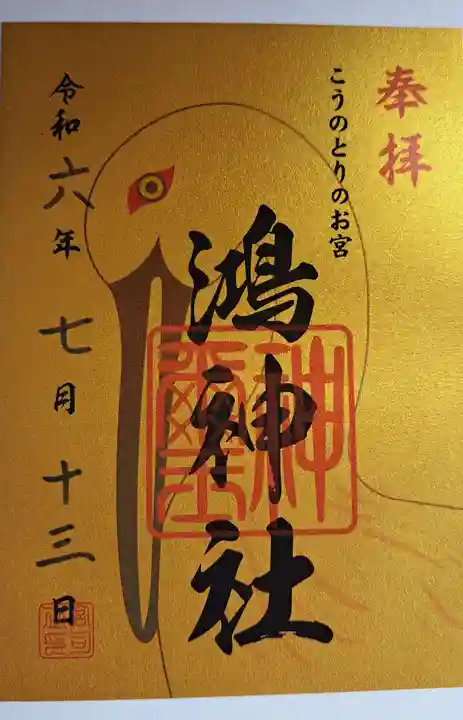 奉拝
こうのとりのお宮
鴻神社
令和六年七月十三日